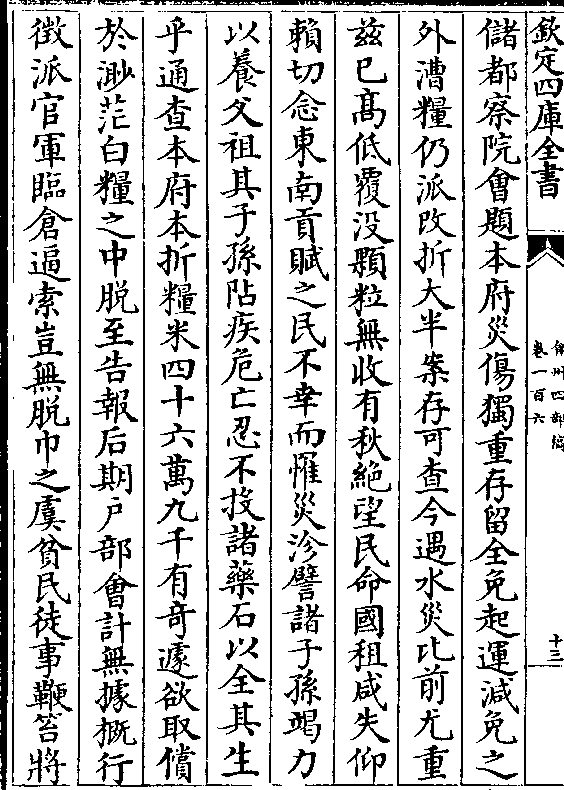 欽定四庫全書
弇州四部稿
卷一百六
十三
儲都察院會題本府災傷獨重存留全免起運減免之
外漕糧仍派改折大半案存可查今遇水災比前尤重
兹已髙低覆没顆粒無收有秋絶望民命國租咸失仰
賴切念東南貢賦之民不幸而罹災沴譬諸子孫竭力
以養父祖其子孫阽疾危亡忍不投諸藥石以全其生
乎通查本府本折糧米四十六萬九千有竒遽欲取償
於渺茫白糧之中脱至告報后期户部會計無據概行
徵派官軍臨倉逼索豈無脱巾之虞貧民徒事鞭笞將